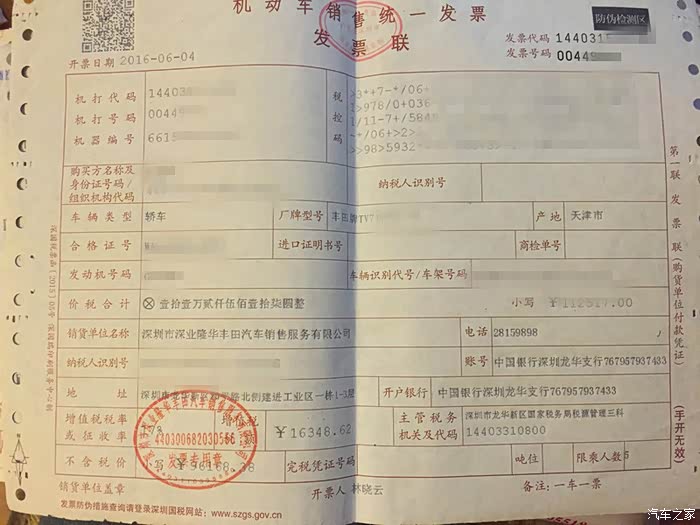 机动车销售统一发票
发票联
防伪检测区
开票日期 2016-06-04
发票代码 140315
发票号码 0044
机打代码 14403
机打号码 0044
机器编号 661
税控码
>3*+7-*/06+
>978/0+036
/11-7+/584
*/06+>2>
>>98>5932-
购买方名称及身份证号码/组织机构代码
纳税人识别号
车辆类型 轿车 厂牌型号 丰田牌TV7 产地 天津市
合格证号 进口证明书号 商检单号
发动机号码 车辆识别代号/车架号码
价税合计 ⊗壹拾壹万贰仟伍佰壹拾柒圆整 小写 ¥112517.00
销货单位名称 深圳市深业隆华丰田汽车销售服务有限公司 电话 28159898
纳税人识别号 账号 中国银行深圳龙华支行767957937433
地址 深圳市龙华新区 路北侧建进工业区一栋1-3层 开户银行 中国银行深圳龙华支行767957937433
增值税税率或征收率 增值税 ¥16348.62 主管税务机关及代码 深圳市龙华新区国家税务局税源管理三科 14403310800
不含税价 ¥ 96168.38 完税凭证号码 吨位 限乘人数 5
440300682030566
发票专用章
销货单位盖章 开票人 林晓云 备注：一车一票
发票防伪措施查询请登录深圳国税网站：www.szgs.gov.cn
第一联 发票联（购货单位付款凭证）
（手开无效）
汽车之家